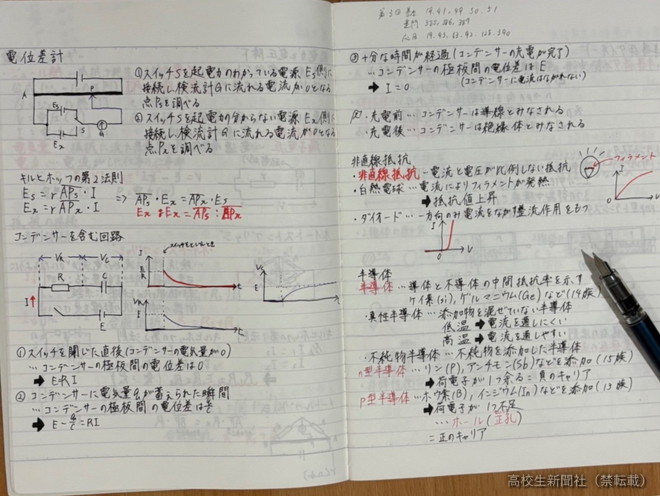 電位差計
①スイッチSを起電力のわかっている電源Es側に
接続し検流計Gに流れる電流が0となる
点Psを調べる
②スイッチSを起電力が分からない電源Ex側に
接続し検流計Gに流れる電流が0となる
点Pxを調べる
A
P
Es
S
Ex
キルヒホッフの第2法則
Es = r APs・I
Ex = r APx・I
⇒ APs・Ex = APx・Es
コンデンサーを含む回路
VR
Vc
R
C
I
E
I
t
t
t
①スイッチを閉じた直後(コンデンサーの電気量が0)
…コンデンサーの極板間の電位差は0
➡ E=RI
②コンデンサーに電気量Qが蓄えられた瞬間
…コンデンサーの極板間の電位差は
➡ E-Q/C=RI
③十分な時間が経過(コンデンサーの充電が完了)
…コンデンサーの極板間の電位差はE
➡ I=0
(コンデンサーに電流はながれない)
・充電前…コンデンサーは導線とみなされる
・充電後…コンデンサーは絶縁体とみなされる
非直線抵抗
・非直線抵抗…電流と電圧が比例しない抵抗
・白熱電球…電流によりフィラメントが発熱
➡抵抗値上昇
フィラメント
I
V
・ダイオード…一方向のみ電流をながす整流作用をもつ
I
V
半導体
半導体…導体と不導体の中間抵抗率を示す
ケイ素(Si),ゲルマニウム(Ge)など(14族)
・真性半導体…添加物を混ぜていない半導体
低温➡電流を通しにくい
高温➡電流を通しやすい
・不純物半導体…不純物を添加した半導体
n型半導体…リン(P),アンチモン(Sb)などを添加(15族)
➡荷電子が1つ余る=負のキャリア
p型半導体…ホウ素(B),インジウム(In)などを添加(13族)
➡荷電子が1つ不足
…ホール(正孔)
=正のキャリア
高校生新聞社(禁転載)